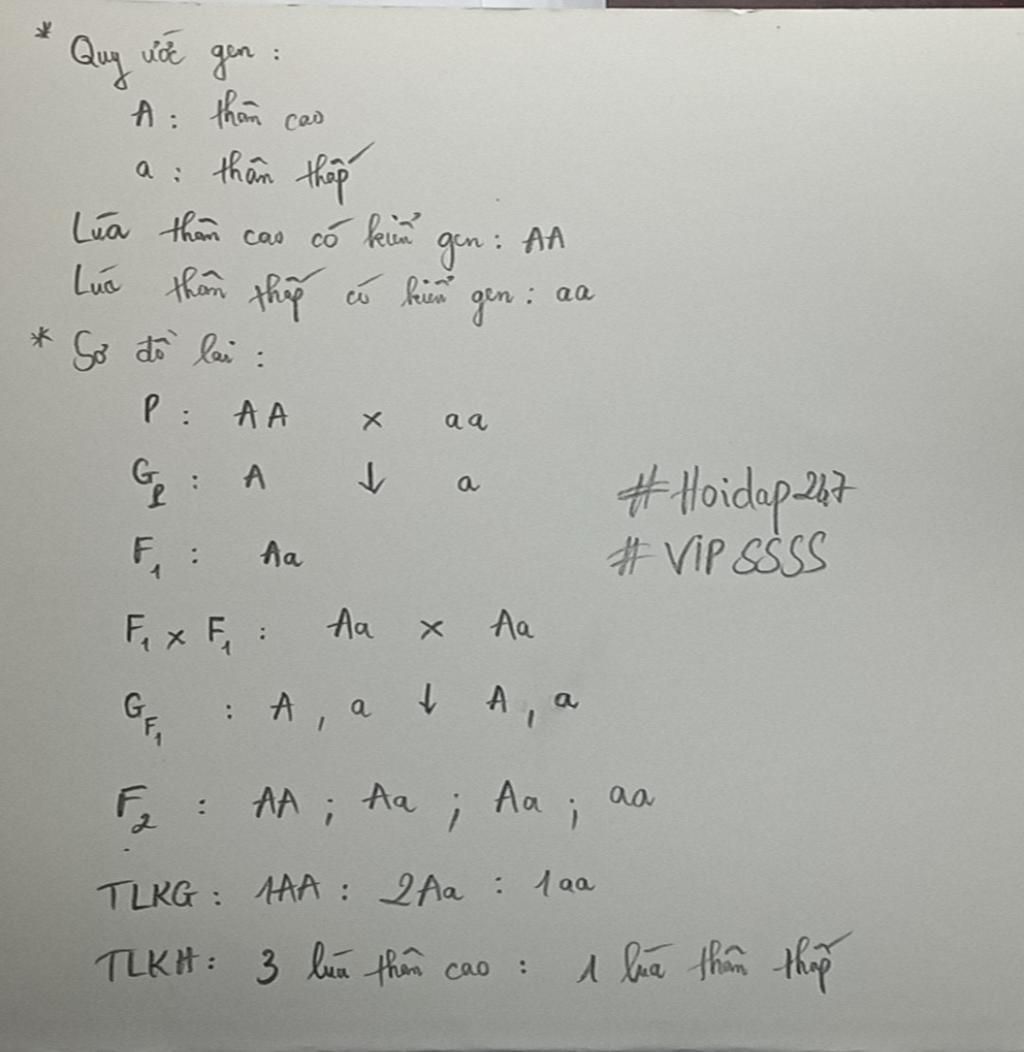 * Quy ước gen :
A : thân cao
a : thân thấp
Lúa thân cao có kiểu gen : AA
Lúa thân thấp có kiểu gen : aa
* Sơ đồ lai :
P : AA x aa
Gp : A ↓ a
F1 : Aa
#Hoidap247
#VIPSSSS
F1 x F1 : Aa x Aa
GF1 : A , a ↓ A , a
F2 : AA ; Aa ; Aa ; aa
TLKG : 1AA : 2Aa : 1aa
TLKH : 3 lúa thân cao : 1 lúa thân thấp